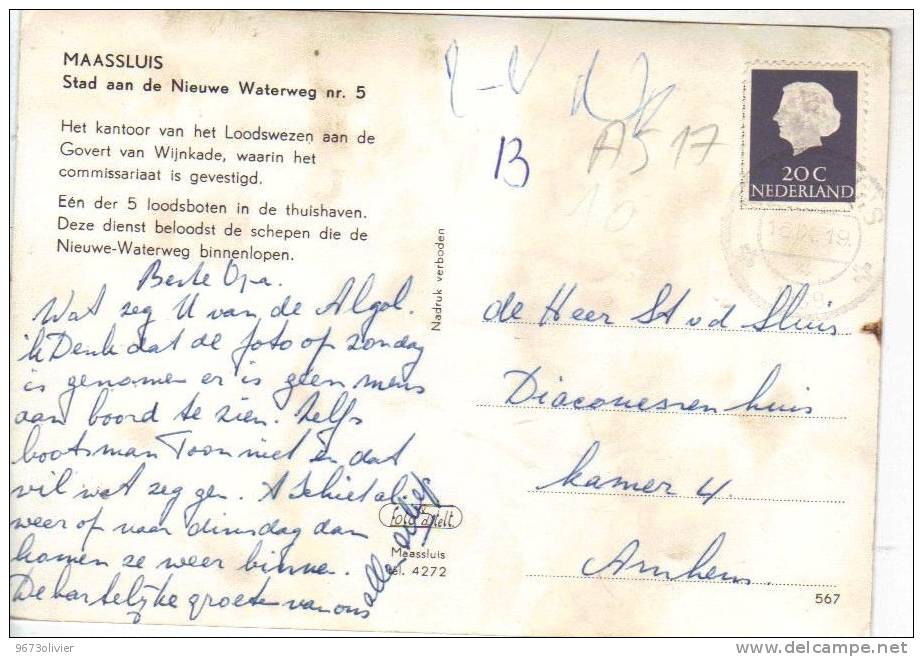 MAASSLUIS
Stad aan de Nieuwe Waterweg nr. 5
Het kantoor van het Loodswezen aan de
Govert van Wijnkade, waarin het
commissariaat is gevestigd.
Eén der 5 loodsboten in de thuishaven.
Deze dienst beloodst de schepen die de
Nieuwe-Waterweg binnenlopen.
Beste Opa.
Wat zeg U van de Algol.
ik Denk dat de foto op zondag
is genomen er is geen mens
aan boord te zien. zelfs
bootsman Toon niet en dat
wil wat zeggen. 't Schiet al
weer op naar dinsdag dan
komen ze weer binnen.
De hartelijke groeten van ons
alle
Nadruk verboden
Maassluis
tel. 4272
B
A5 17
10
20C
NEDERLAND
de Heer St v d Sluis
Diaconessenhuis
kamer 4.
Arnhem.
567
9673olivier
www.delcampe.net